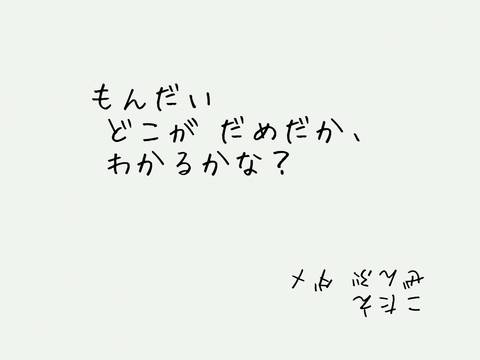 もんだい
どこが だめだか、
わかるかな？
こたえ
ぜんぶ ダメ